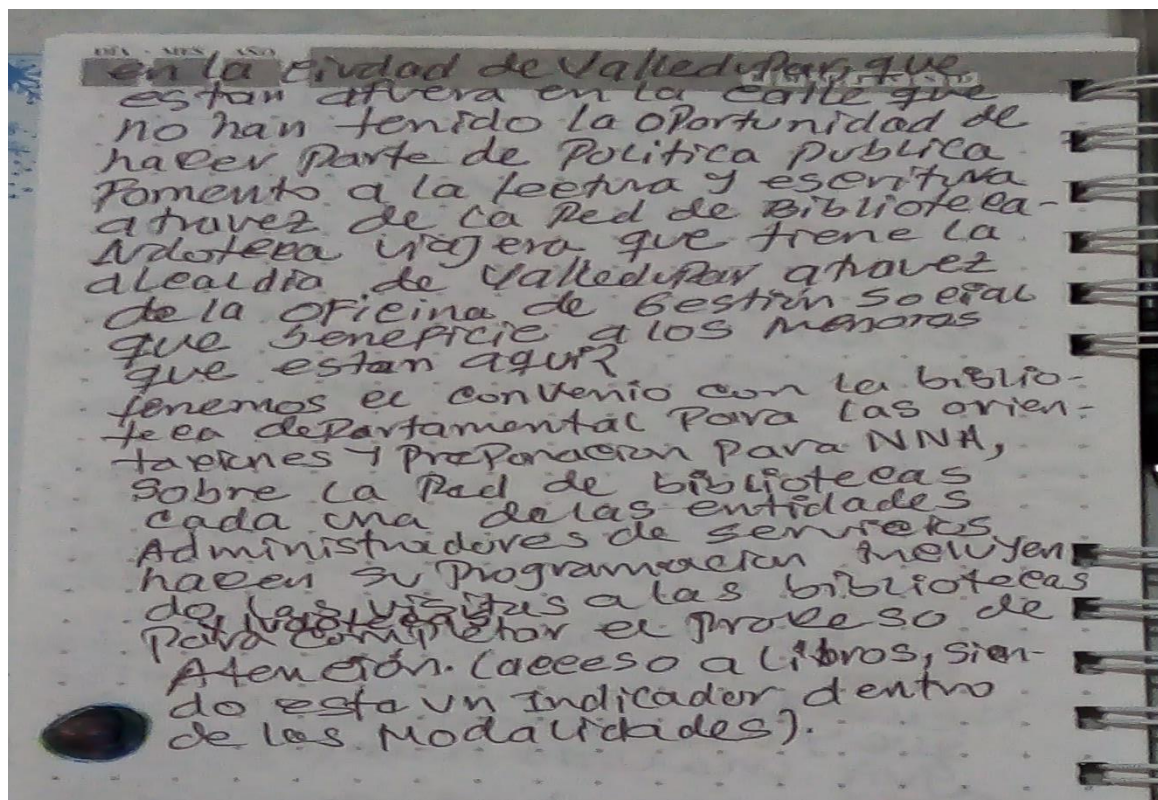 DÍA · MES · AÑO
en la ciudad de Valledupar, que
estan afuera en la calle que
no han tenido la oportunidad de
hacer parte de Politica publica
Fomento a la lectura y escritura
atravez de la Red de Biblioteca-
viajera que tiene la
alcaldia de Valledupar atravez
de la oficina de Gestión Social
que beneficie a los menores
que estan aqui?
tenemos el convenio con la biblio-
teca departamental para las orien-
taciones y preparacion para NNA,
Sobre la Red de bibliotecas
cada una de las entidades
Administradores de servicios
hacen su programacion incluyen
do las visitas a las bibliotecas
para completar el proceso de
Atención. (acceso a libros, sien-
do esta un Indicador dentro
de las Modalidades).